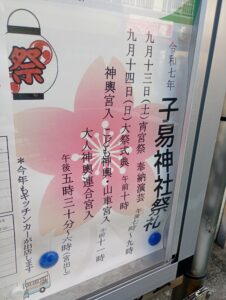 令和七年
子易神社祭礼
九月十三日(土)宵宮祭 奉納演芸 午後 時~九時
九月十四日(日)大祭式典 午前十時
神輿宮入 こども神輿・山車宮入 午前十一時
大人神輿連合宮入
午後五時三十分~六時(宮出し)
*今年もキッチンカーが出店します
祭